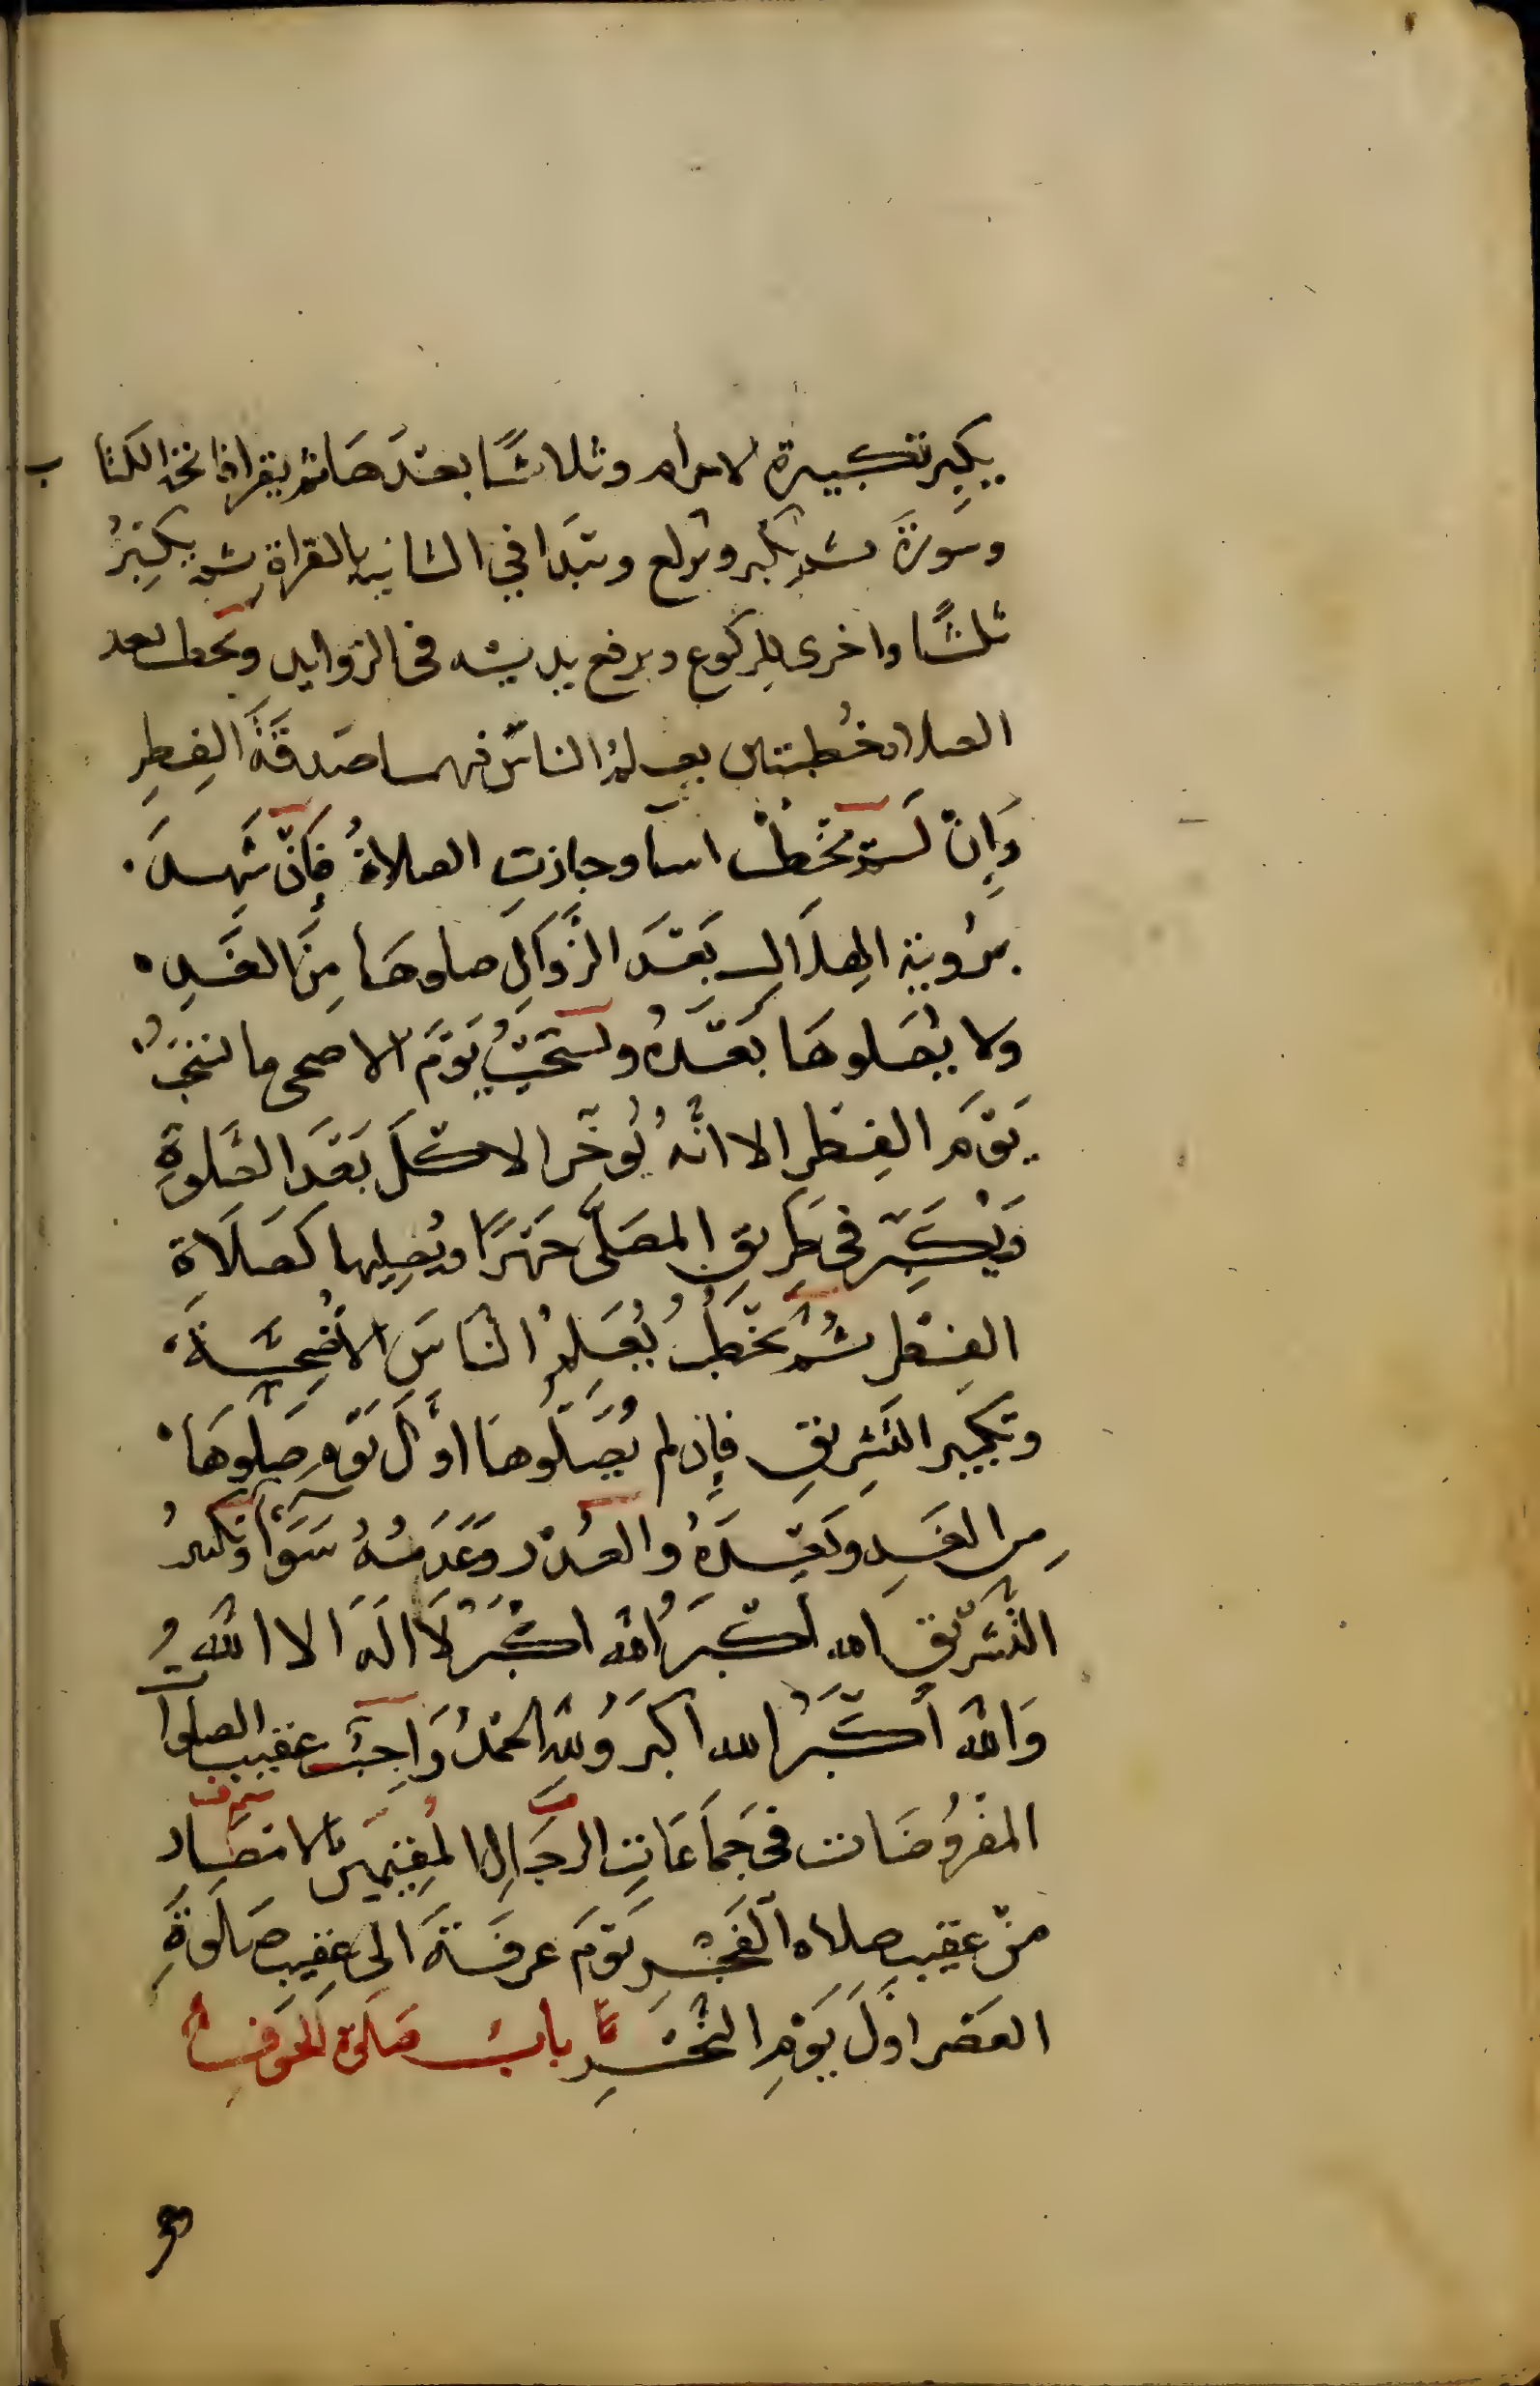 يكبر تكبيرة الاحرام وثلاثًا بعدها ثم يقرا فاتحة الكتاب
وسورةً ثم يكبر ويركع ويبدا في الثانية بالقراة ثم يكبّرُ
ثلثًا واخرى للركوع ويرفع يديه في الزوايد ويخطب بعد
الصلاة خُطبتين يعلم الناسَ فيهما صَدقَةَ الفِطرِ
وَإِنْ لَم يَخْطُبْ اسآ وجازتِ الصلاةُ فَإِنْ شُهِدَ
برُوية الهِلَالِ بَعْدَ الزَّوَالِ صلوهَا مِنَ الغَدِ
ولا يُصَلوهَا بَعْدَهُ ويستحَبُّ يَوْمَ الاضحى ما يستحبُّ
يَوْمَ الفِطْرِ الا انَّهُ يُوخِّر الاكْلَ بَعْدَ الصَّلوةِ
وَيُكَبِّر في طَرِيقِ المصَلَّى جَهْرًا ويُصليها كصَلَاة
الفِطْرِ ثُمَّ يَخْطُبُ يُعَلِمُ النَّاسَ الأُضْحِيَّةَ
وتكبير التَشريقِ فإن لم يُصَلّوهَا اوّلَ يَوْمٍ صَلَّوهَا
من الغَدِ وبَعْدَهُ والعُذْر وَعَدَمُهُ سَوَآءٌ وتكبيرُ
التَّشْرِيْقِ الله أكْبَرُ الله اكْبَرُ لَا الَهَ الا اللهُ وُ
وَاللهُ أَكْبَرُ الله اكبرَ وَلله الحَمْدُ وَاجِبٌ عقيب الصلوات
المفْرُوضَات في جَمَاعَاتِ الرجَالِ المُقِيمينَ بالامْصَار
منْ عقيب صلاه الفَجْرِ يَوْمَ عرفَةَ الى عقيب صَلَوةِ
العَصر اوّلَ يَوْمِ النَّحْرِ بابُ صَلَوة الخَوفِ